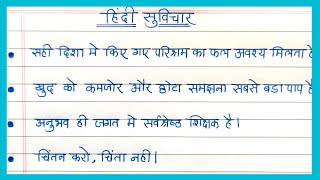 हिंदी सुविचार
सही दिशा मे किए गए परिश्रम का फल अवश्य मिलता है
खुद को कमजोर और छोटा समझना सबसे बडा पाप है
अनुभव ही जगत मे सर्वश्रेष्ठ शिक्षक है।
चिंतन करो, चिंता नही।